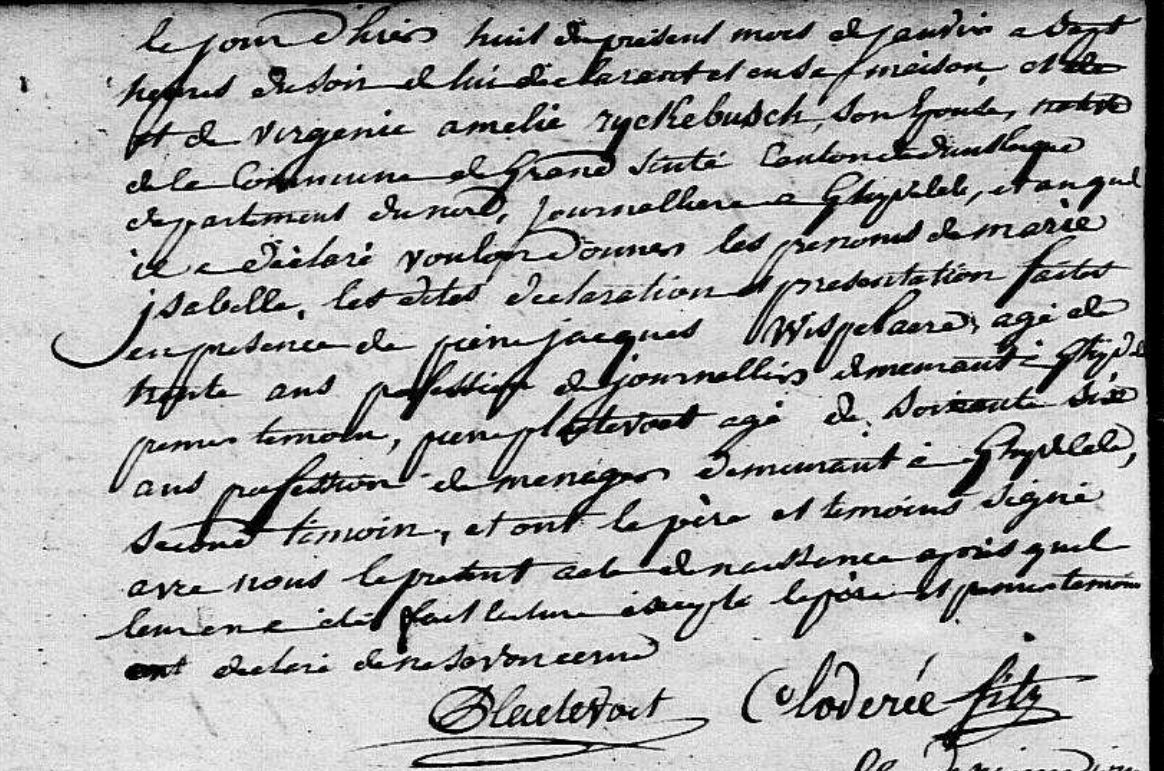 le jour d'hier huit du présent mois de janvier a sept
heures du soir de lui déclarant et en sa maison, et de
et de virgenie amelie ryckebusch, son Epouse, native
de la Commune de Grand Sinte Canton de dunkerque
departement du nord, journalliere a Ghyvelde, et auquel
il a déclaré vouloir donner les prenoms de marie
jsabelle, les dites declaration et presentation faites
en presence de pierre jacques Wispelaere, agé de
trente ans profession de journallier demeurant à Ghyvelde
premier temoin, pierre plaetevoet agé de soixante six
ans profession de menager demeurant à Ghyvelde,
second temoin, et ont le père et temoins signé
avec nous le present acte de naissance après quil
leur en a été fait lecture excepté le père et premier temoin
ont declaré de ne savoir ecrire
Plaetevoet Cloderée fils